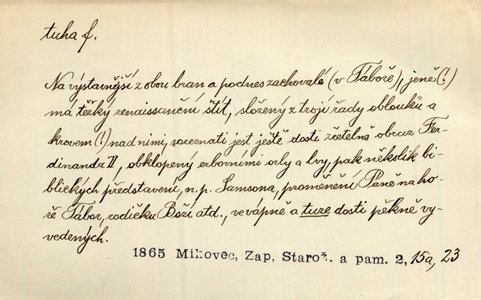 tuha f.
Na výstavnější z obou bran a podnes zachovalé (v Táboře), jenž (!)
má těžký renaissanční štít, složený z trojí řady oblouků a
krovem (!) nad nimi, rozeznati jest ještě dosti zřetelně obraz Fer-
dinanda II, obklopený erbovními orly a lvy, pak několik bi-
blických představení, n. p. Samsona, proměnění Páně na ho-
ře Tábor, rodičku Boží atd., ve vápně a tuze dosti pěkně vy-
vedených.
1865 Mikovec, Zap, Starož. a pam. 2, 15a, 23